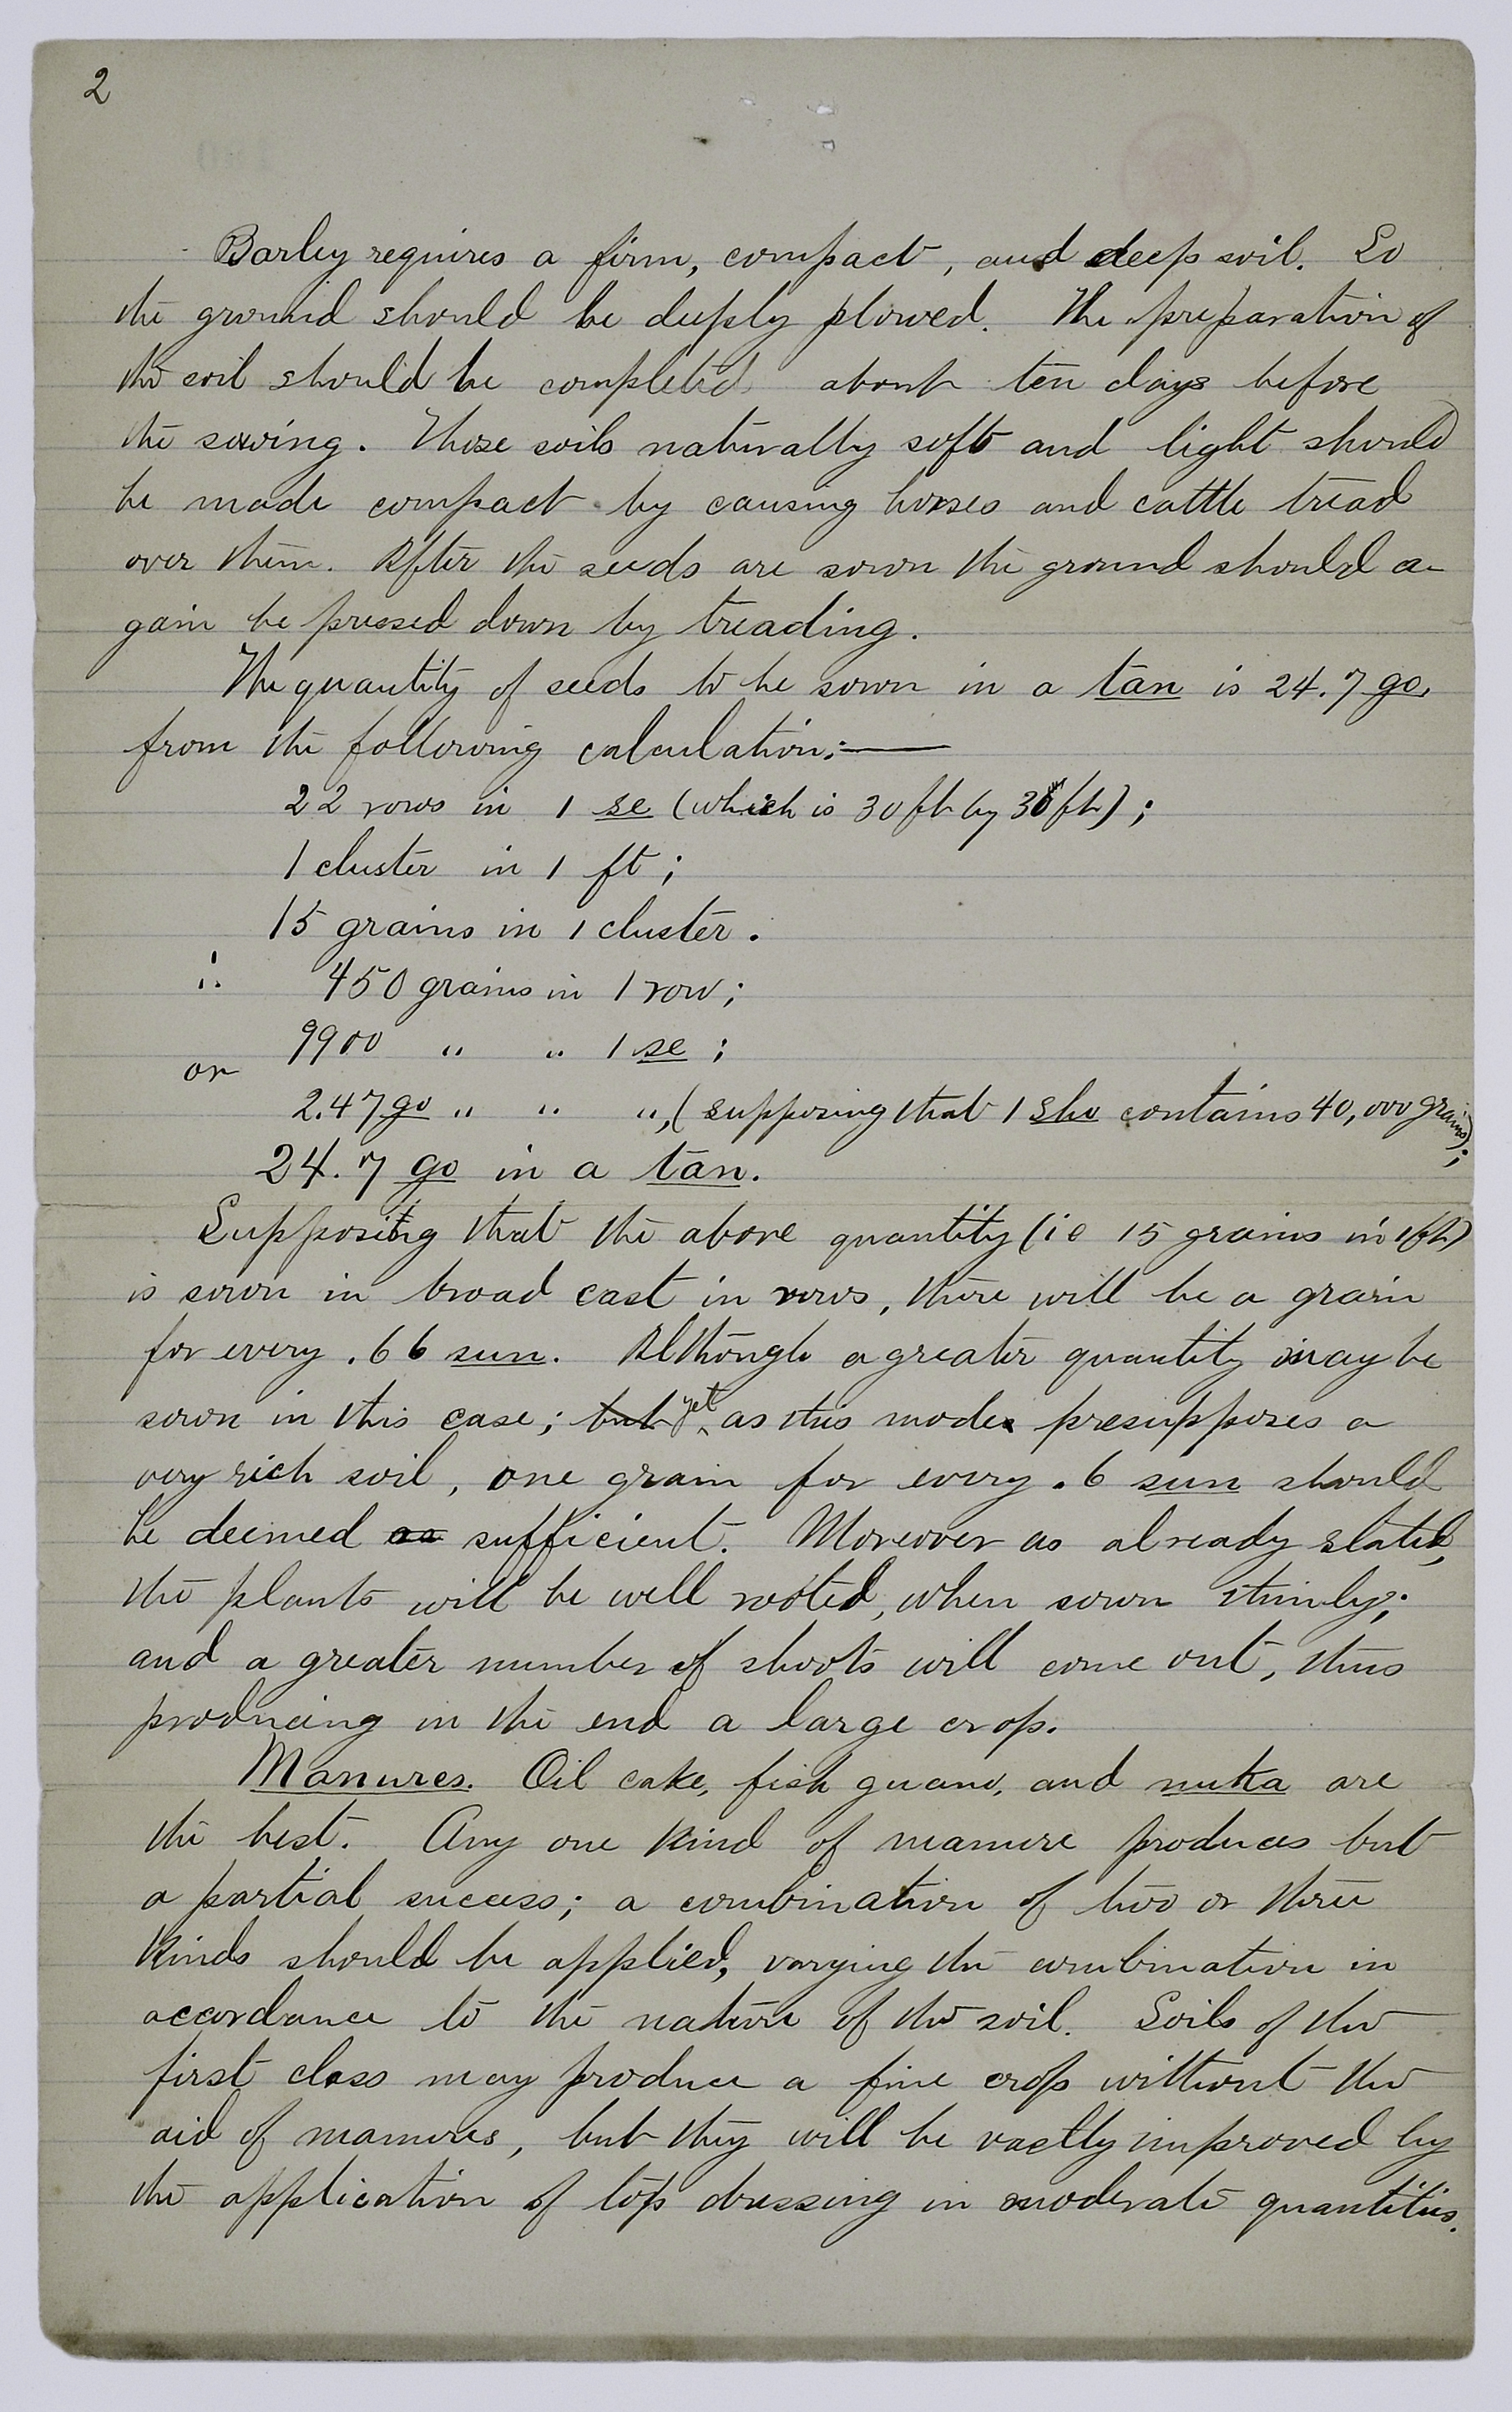 2
Barley requires a firm, compact, and deep soil. So
the ground should be deeply plowed. The preparation of
the soil should be completed about ten days before
the sowing. Those soils naturally soft and light should
be made compact by causing horses and cattle tread
over them. After the seeds are sown the ground should a-
gain be pressed down by treading.
The quantity of seeds to be sown in a tan is 24.7 go,
from the following calculation:—
22 rows in 1 se (which is 30 ft by 30 ft);
1 cluster in 1 ft;
15 grains in 1 cluster.
∴ 450 grains in 1 row;
9900 " " 1 se;
or
2.47 go " " ", (supposing that 1 sho contains 40,000 grains);
24.7 go in a tan.
Supposing that the above quantity (ie 15 grains in 1 ft)
is sown in broad cast in rows, there will be a grain
for every .66 sun. Although a greater quantity may be
sown in this case; but yet as this mode presupposes a
very rich soil, one grain for every .6 sun should
be deemed as sufficient. Moreover as already stated,
the plants will be well rooted, when sown thinly;
and a greater number of shoots will come out, thus
producing in the end a large crop.
Manures. Oil cake, fish guano, and nuka are
the best. Any one kind of manure produces but
a partial success; a combination of two or three
kinds should be applied, varying the combination in
accordance to the nature of the soil. Soils of the
first class may produce a fine crop without the
aid of manures, but they will be vastly improved by
the application of top dressing in moderate quantities.